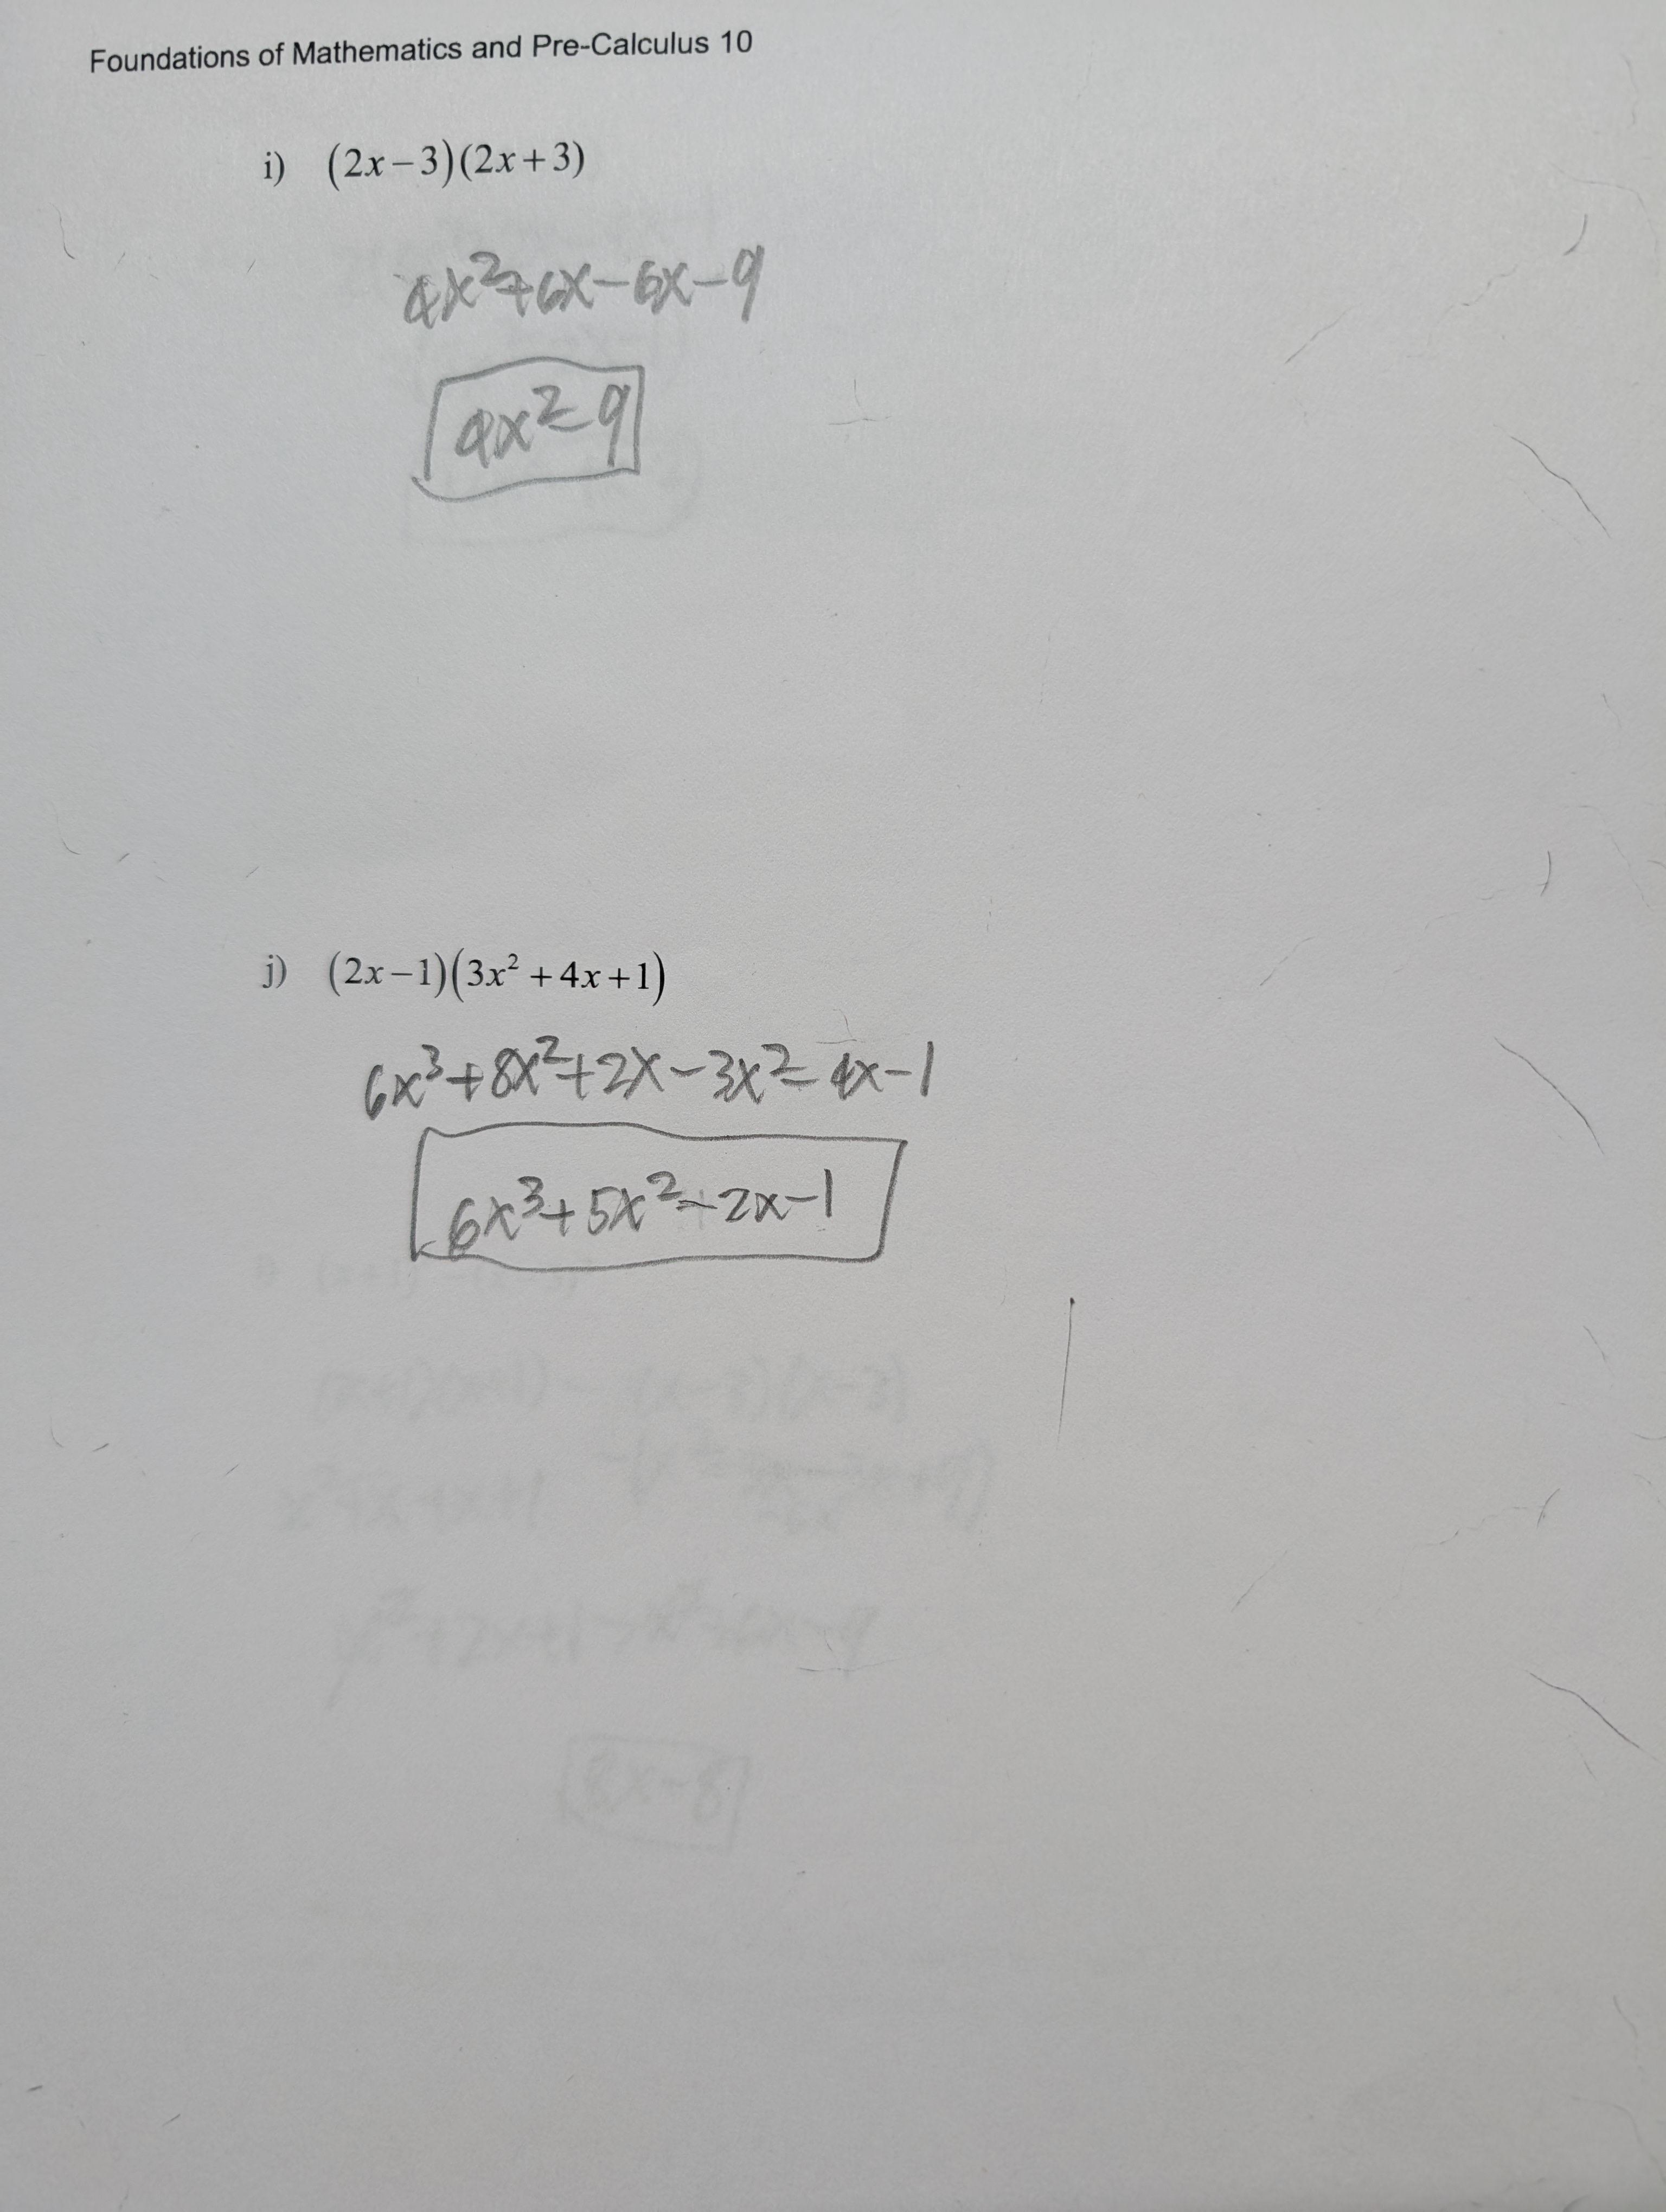 Foundations of Mathematics and Pre-Calculus 10
i) (2x−3)(2x+3)
4x²+6x−6x−9
4x²−9
j) (2x−1)(3x²+4x+1)
6x³+8x²+2x−3x²−4x−1
6x³+5x²−2x−1
8x−8